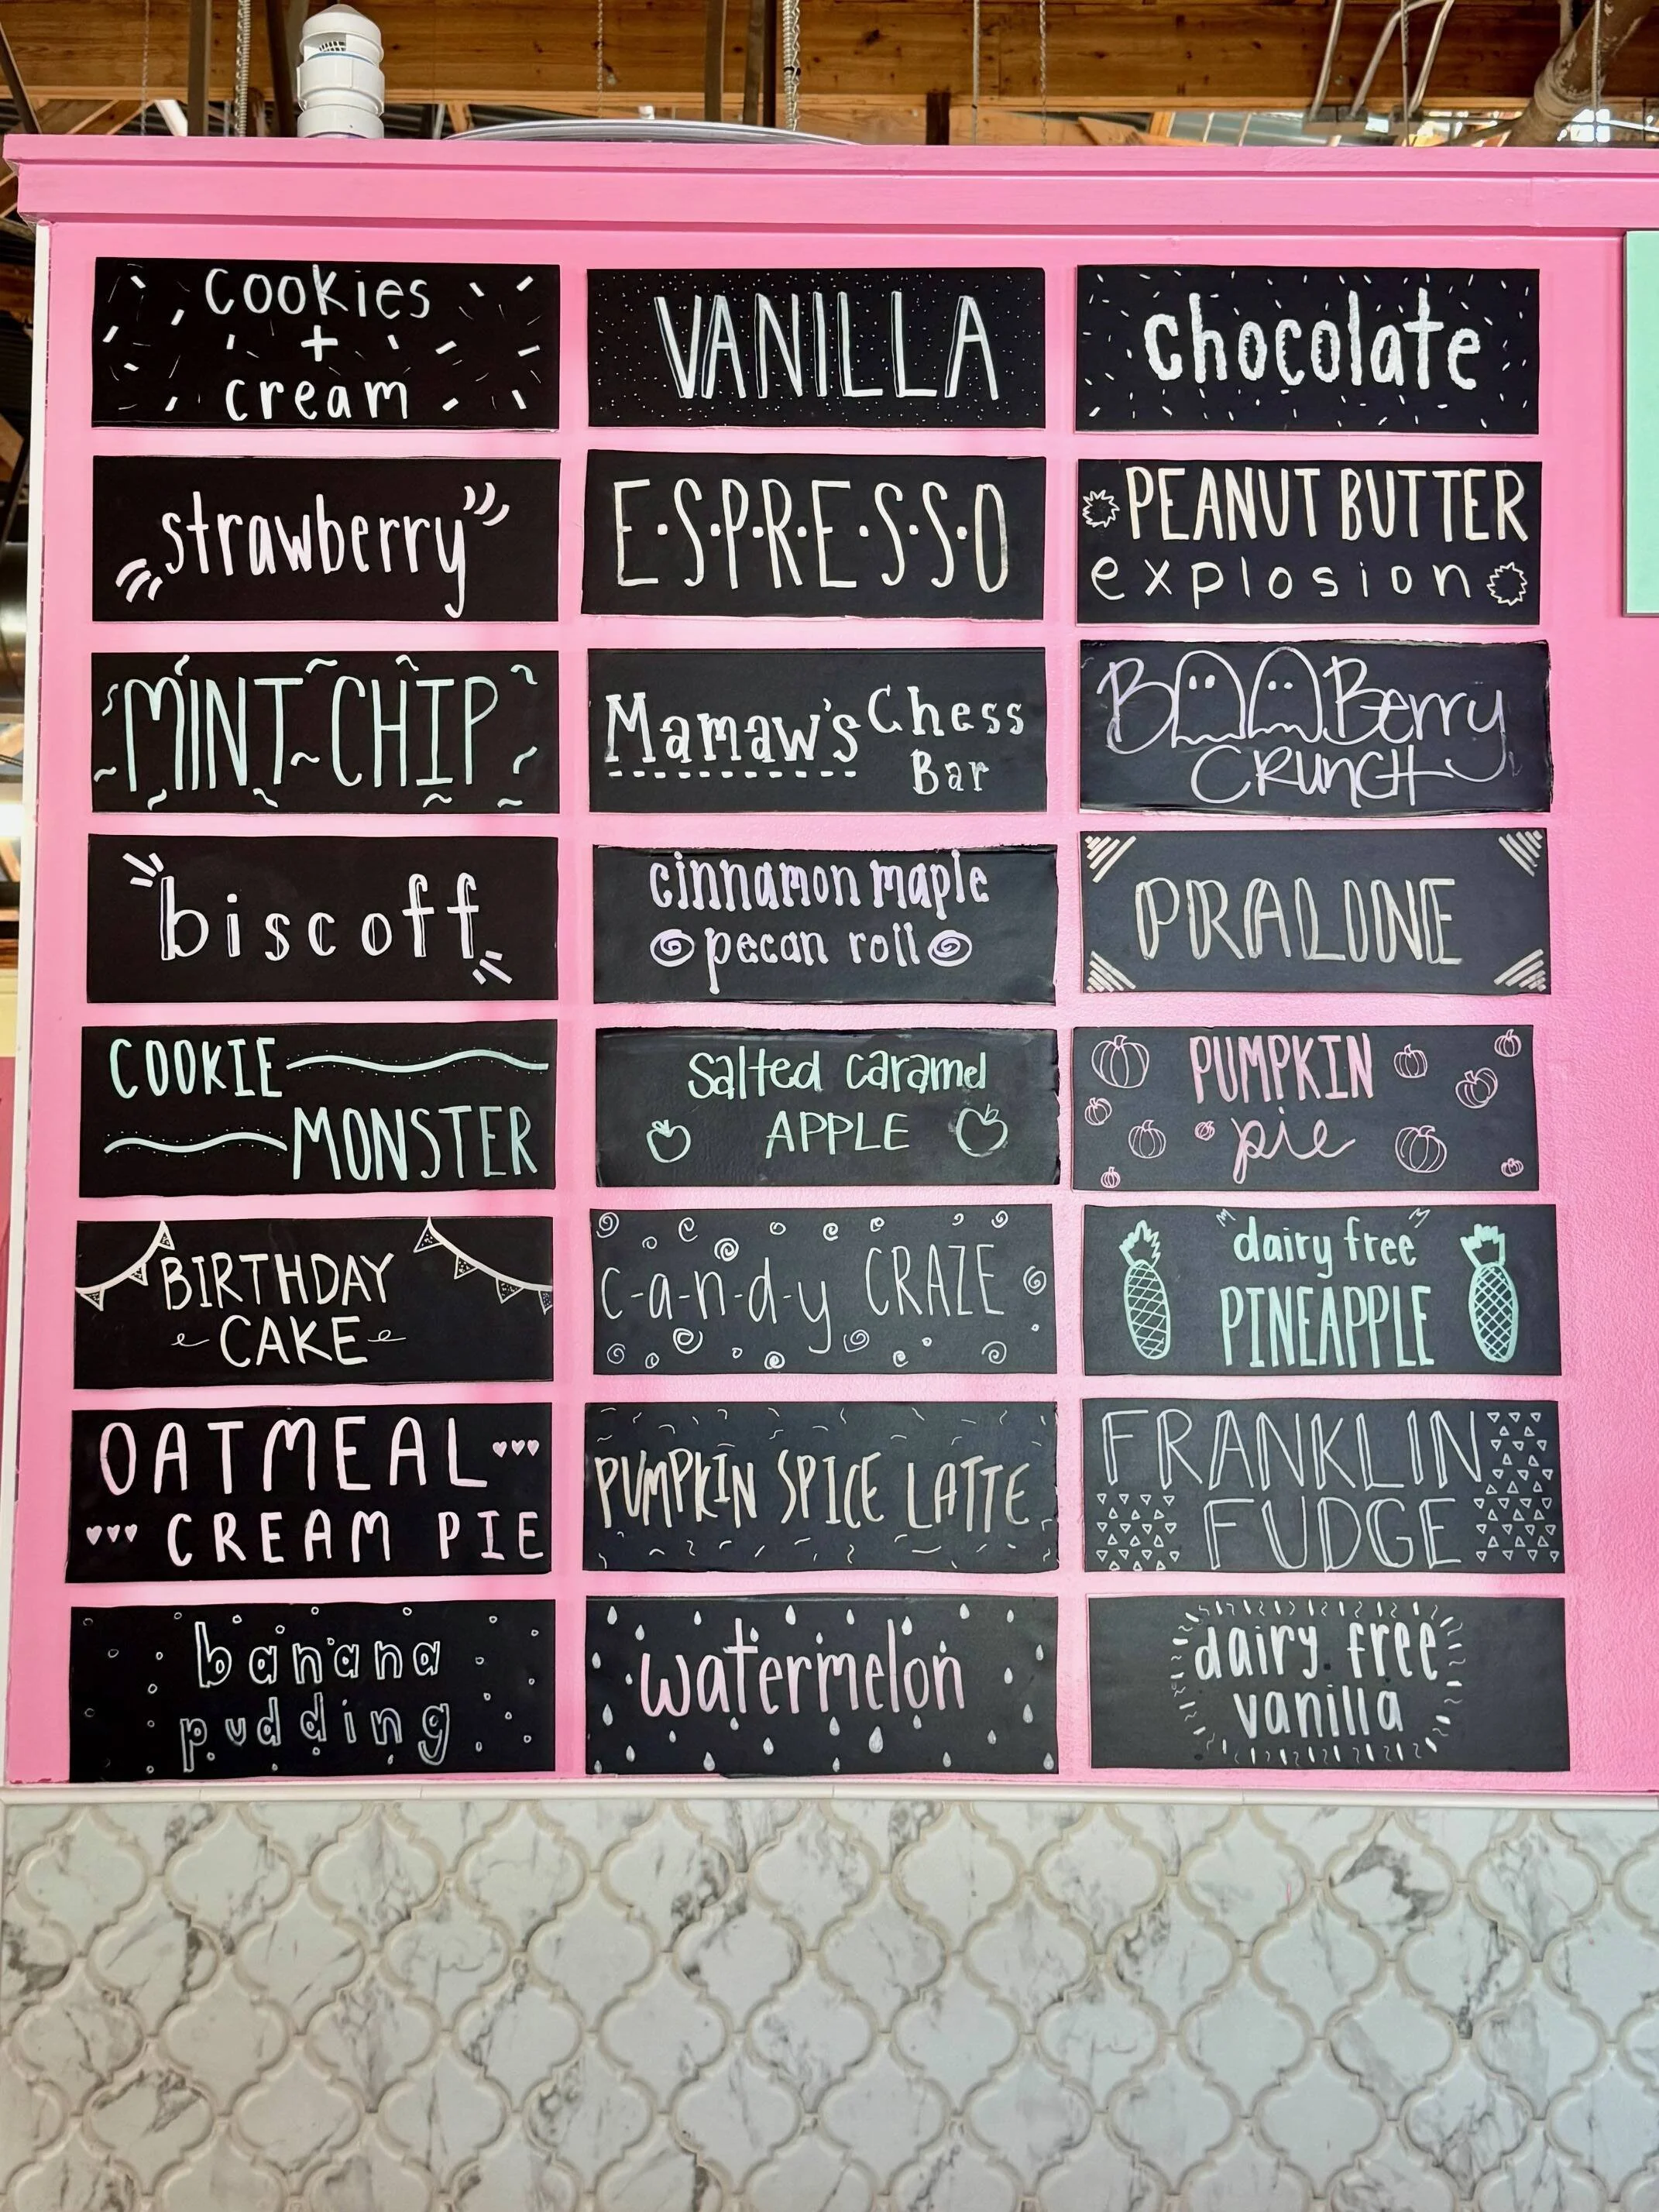 cookies
+
cream
VANILLA
chocolate
strawberry
E·S·P·R·E·S·S·O
PEANUT BUTTER
explosion
MINT CHIP
Mamaw's Chess
Bar
BOOBerry
CRUNCH
biscoff
cinnamon maple
pecan roll
PRALINE
COOKIE
MONSTER
Salted Caramel
APPLE
PUMPKIN
pie
BIRTHDAY
CAKE
c-a-n-d-y CRAZE
dairy free
PINEAPPLE
OATMEAL
CREAM PIE
PUMPKIN SPICE LATTE
FRANKLIN
FUDGE
banana
pudding
watermelon
dairy free
vanilla